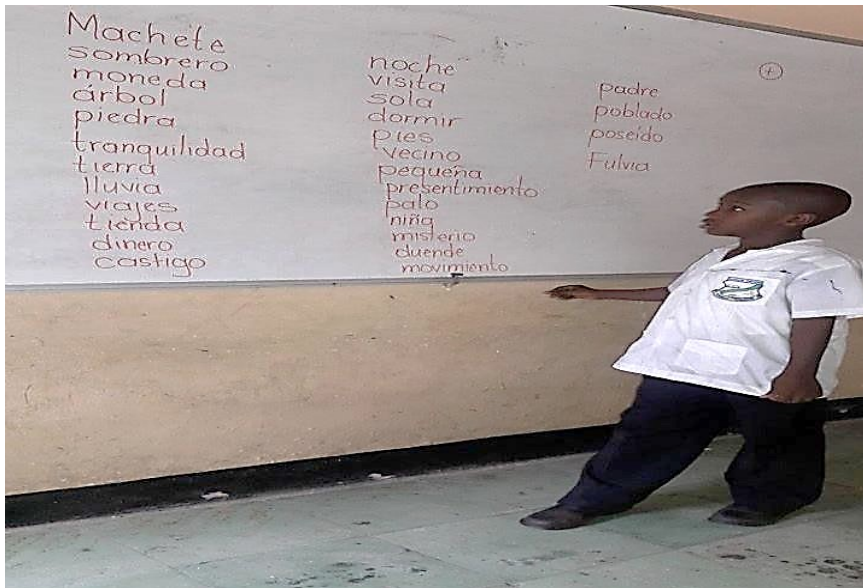 Machete
sombrero
moneda
árbol
piedra
tranquilidad
tierra
lluvia
viajes
tienda
dinero
castigo
noche
visita
sola
dormir
pies
vecino
pequeña
presentimiento
palo
niña
misterio
duende
movimiento
+
padre
poblado
poseído
Fulvia